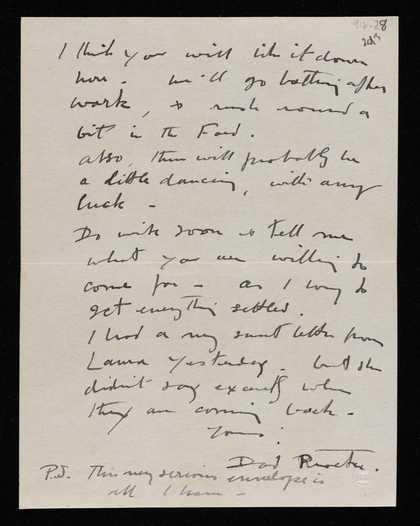 I think you will like it down
here. We'll go bathing after
work, & rush round a
bit in the Ford.
also, there will probably be
a little dancing, with any
luck -
Do write soon & tell me
what you are willing to
come for - as I long to
get everything settled.
I had a very sweet letter from
Laura yesterday - but she
didn't say exactly when
they are coming back -
Yours,
Dod Procter.
P.S. This very serious envelope is
all I have -